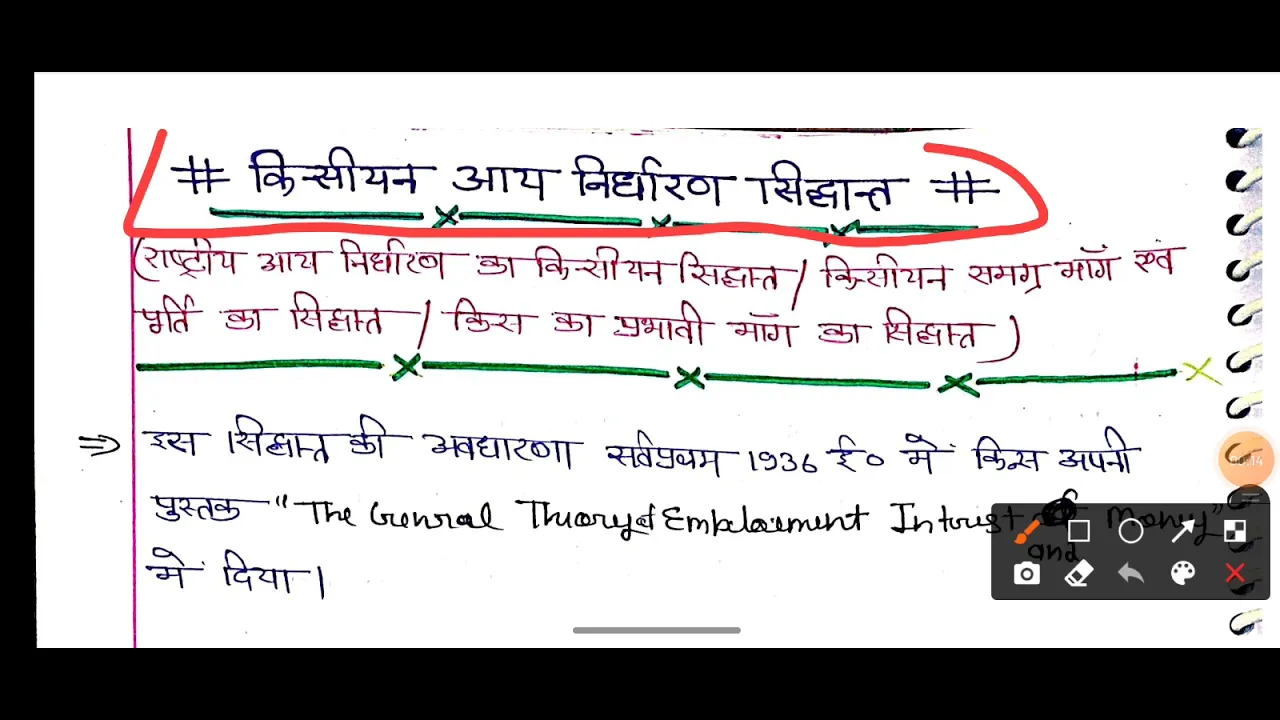 # किन्सीयन आय निर्धारण सिद्धान्त #
(राष्ट्रीय आय निर्धारण का किन्सीयन सिद्धान्त / किन्सीयन समग्र माँग एवं
पूर्ति का सिद्धान्त / किंस का प्रभावी माँग का सिद्धान्त )
⇒ इस सिद्धान्त की अवधारणा सर्वप्रथम 1936 ई० में किन्स अपनी
पुस्तक "The Genral Theory of Emploiement Intrest Money"
and
में दिया।